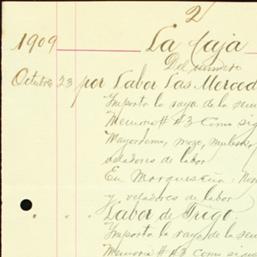 2
1909 La Caja
Del numero
Octubre 23 por Labor Las Merced
Importe la raya de la sem
Memoria # #3 Como sig
Mayordomo, mozo,
veladores de labor
En Marquesina:
y veladores de labor
" " Labor de Trigo.
Importe la raya de la sem
Memoria # #3 Como sigue